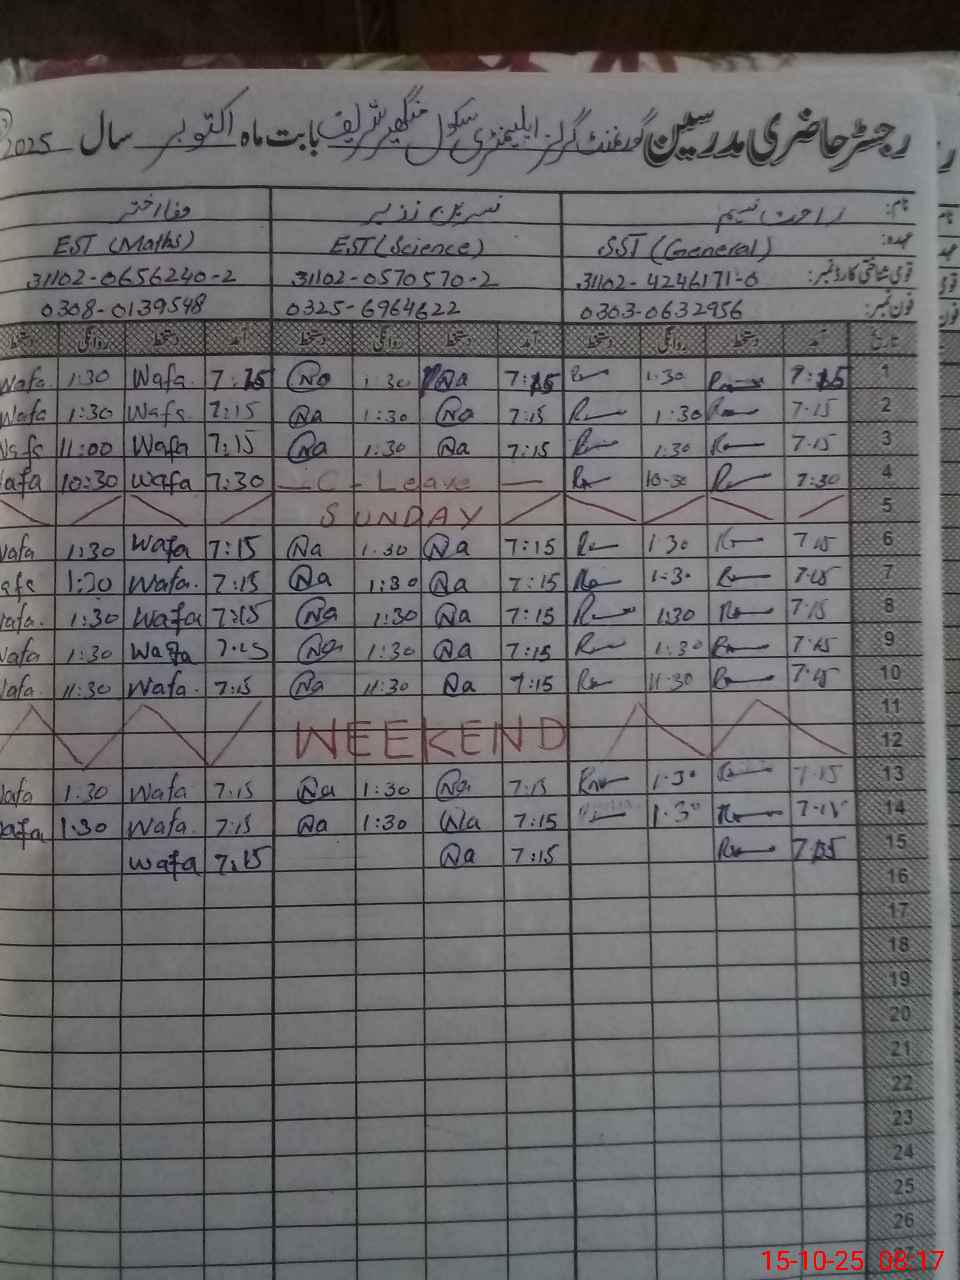 رجسٹر حاضری مدرسین گورنمنٹ گرلز ایلیمنٹری سکول شریف بابت ماہ اکتوبر سال 2025
نام: راحت نسیم نسرین نذیر وفا اختر
عہدہ: SST (General) EST (Science) EST (Maths)
قومی شناختی کارڈ نمبر: 31102-4246171-0 31102-0570570-2 31102-0656240-2
فون نمبر: 0303-0632956 0325-6964622 0308-0139548
تاریخ آمد دستخط روانگی دستخط آمد دستخط روانگی دستخط آمد دستخط روانگی دستخط
1 7:15 1:30 7:15 Na 1:30 Na 7:15 Wafa. 1:30 Wafa.
2 7.15 1:30 7:15 Na 1:30 Na 7:15 Wafa 1:30 Wafa
3 7.15 1.30 7:15 Na 1.30 Na 7:15 Wafa 11:00 Wafa
4 7:30 10-30 — C - Leave — 7:30 Wafa 10:30 Wafa
5 SUNDAY
6 7.15 1:30 7:15 Na 1.30 Na 7:15 Wafa 1:30 Wafa
7 7.15 1:30 7:15 Na 1:30 Na 7:15 Wafa. 1:30 Wafa
8 7.15 1:30 7:15 Na 1:30 Na 7:15 Wafa 1:30 Wafa.
9 7.15 1:30 7:15 Na 1:30 Na 7.15 Wafa 1:30 Wafa
10 7.15 11.30 7:15 Na 11:30 Na 7:15 Wafa. 11:30 Wafa.
11
WEEKEND
12
13 7.15 1:30 7:15 Na 1:30 Na 7:15 Wafa 1:30 Wafa
14 7.15 1:30 7:15 Na 1:30 Na 7:15 Wafa. 1:30 Wafa
15 7:15 7:15 Na 7:15 Wafa
16
17
18
19
20
21
22
23
24
25
26
15-10-25 08:17